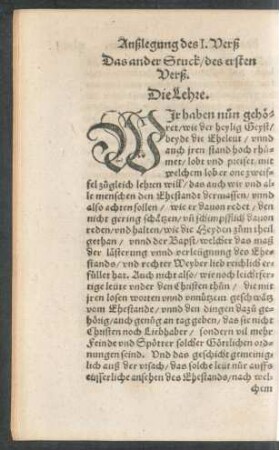 Außlegung des I. Verß
Das ander Stuck/ des ersten
Verß.
Die Lehre.
WJr haben nůn gehö-
ret/ wie der heylig Geyst/
beyde die Eheleut / vnnd
auch jren stand hoch rhů-
met/ lobt vnd preiset. mit
welchem lob er one zweif-
fel zůgleich lehren will/ das auch wir vnd al-
le menschen den Ehestande dermassen/ vnnd
also achten sollen / wie er dauon redet / den
nicht gering schätzen/ vñ schimpflich dauon
reden/ vnd halten/ wie die Heyden zům theil
gethan / vnnd der Bapst/ welcher das maß
der lästerung vnnd verleügnung des Ehe-
stands/ vnd rechter Weyber lieb reichlich er-
füllet hat. Auch nicht also/ wie noch leichtfer-
tige leute vnder den Christen thůn / die mit
jren losen worten vnnd vnnützen geschwätz
vom Ehestande/ vnnd den dingen dazů ge-
hörig/ auch genůg an tag geben/ das sie nicht
Christen noch Liebhaber / sondern vil mehr
Feinde vnd Spötter solcher Göttlichen ord-
nungen seind. Vnd das geschicht gemeinig-
lich auß der vrsach/ das solche leut nur auffs
eüsserliche ansehen des Ehestands/ nach wel-
chem